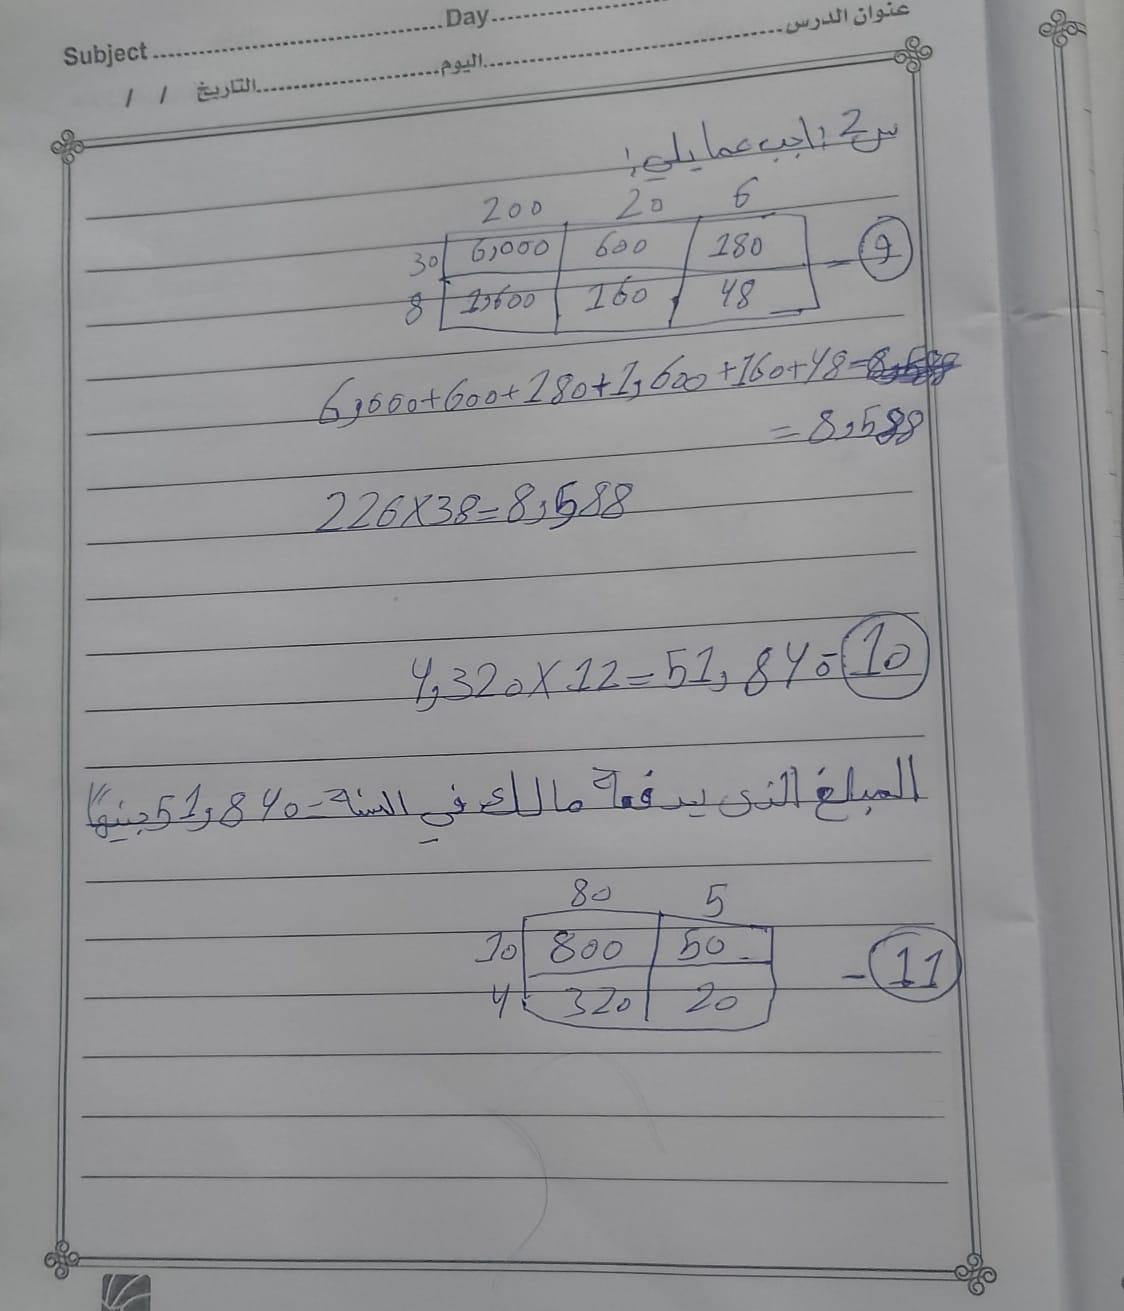 Subject ........ Day ........
عنوان الدرس ........ اليوم ........ التاريخ / /
س2 : اجب عما يلي :
200 20 6
30 6,000 600 180 - 9
8 1,600 160 48
6,000+600+180+1,600+160+48=
= 8,588
226×38=8,588
4,320×12=51,840 - 10
المبلغ الذى يدفعة مالك في السنة = 51,840 جنيهًا
80 5
10 800 50 - 11
4 320 20